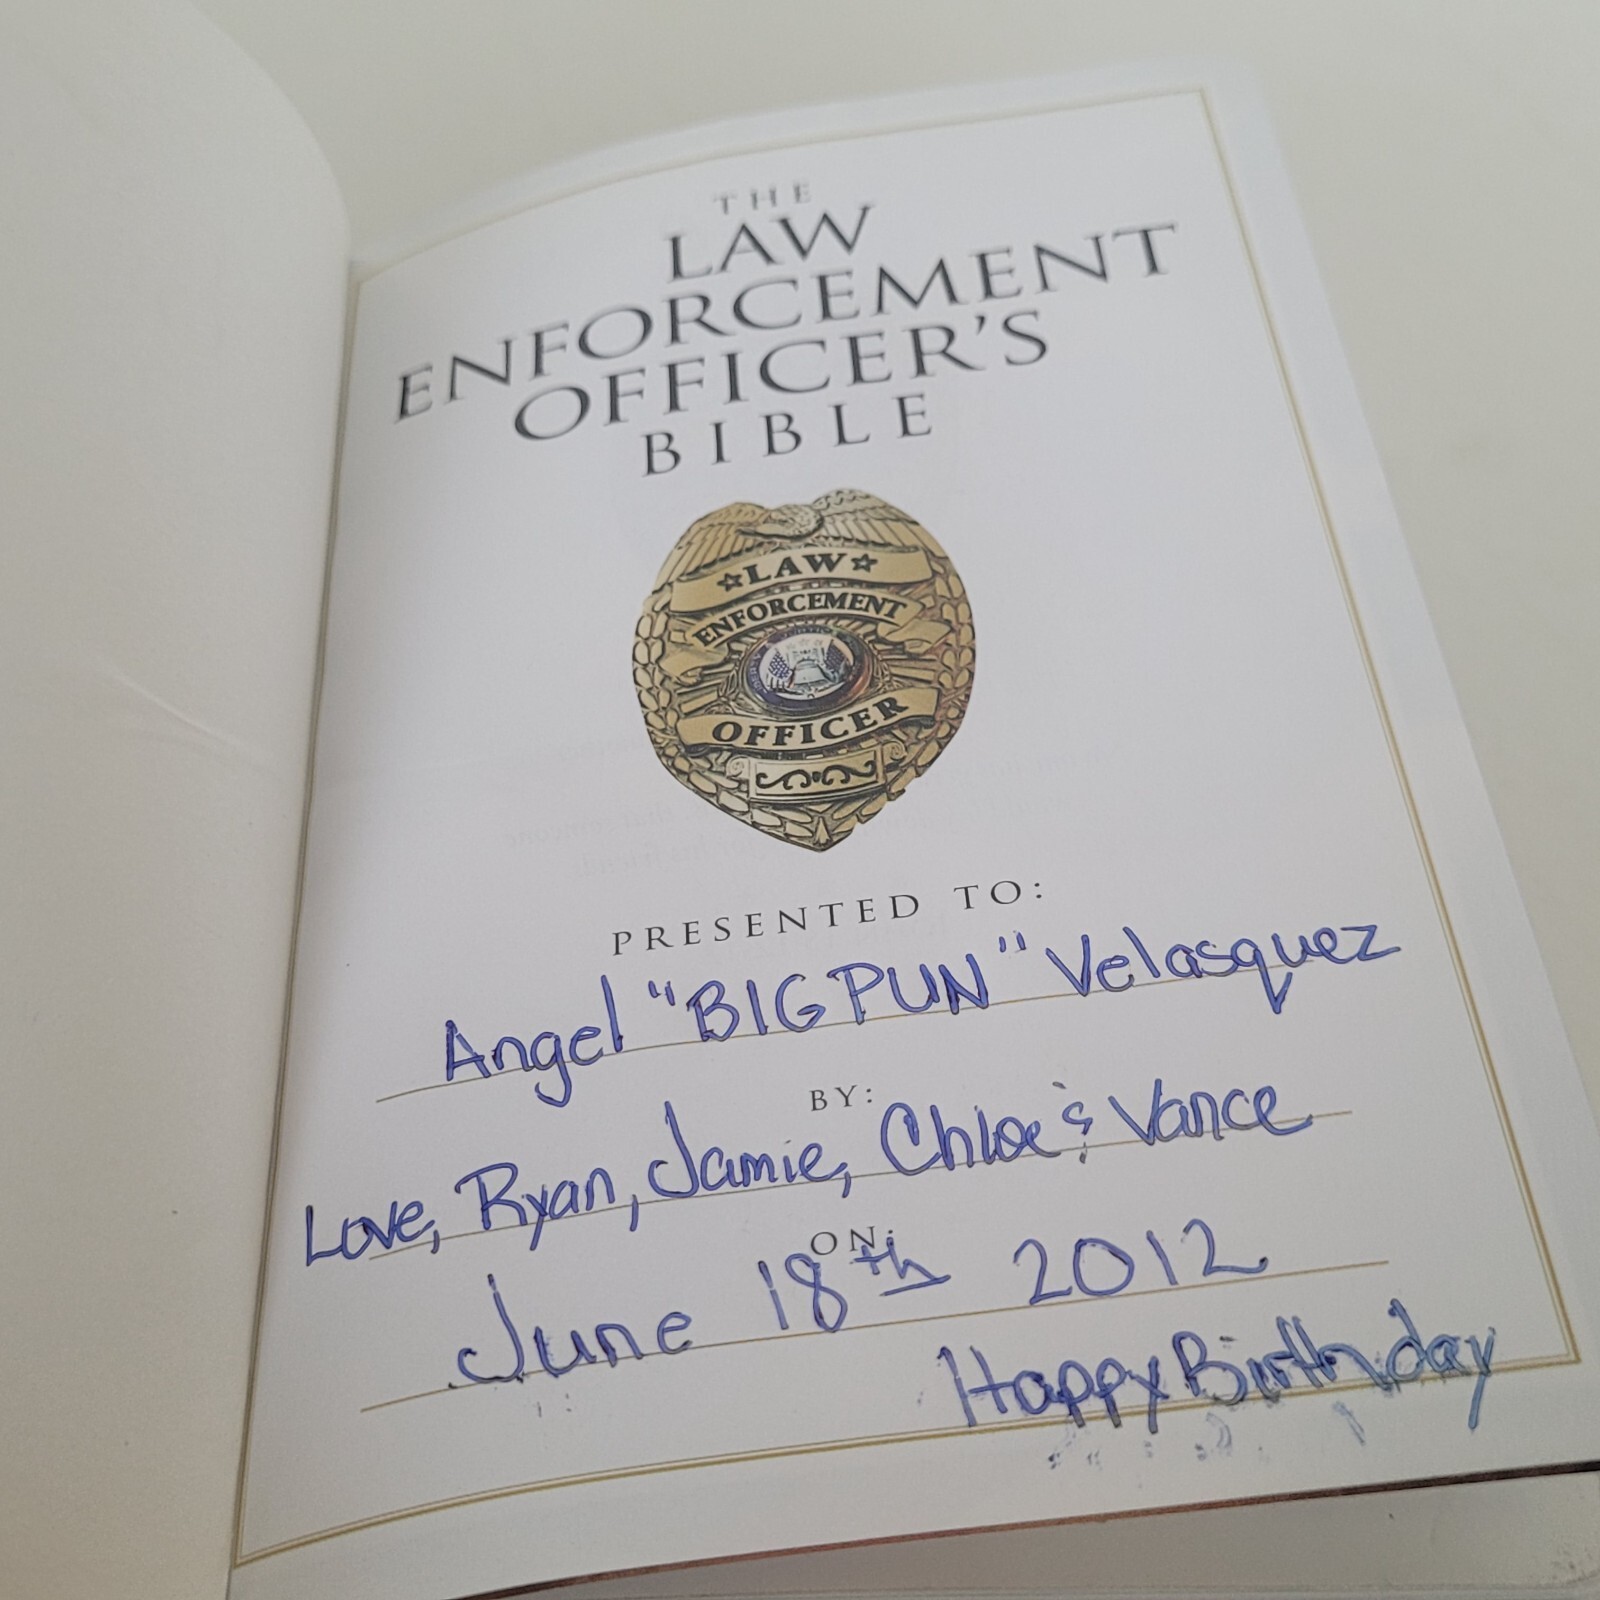 THE
LAW
ENFORCEMENT
OFFICER'S
BIBLE
LAW
ENFORCEMENT
OFFICER
PRESENTED TO:
Angel "BIG PUN" Velasquez
BY:
Love, Ryan, Jamie, Chloe & Vance
ON:
June 18th 2012
Happy Birthday